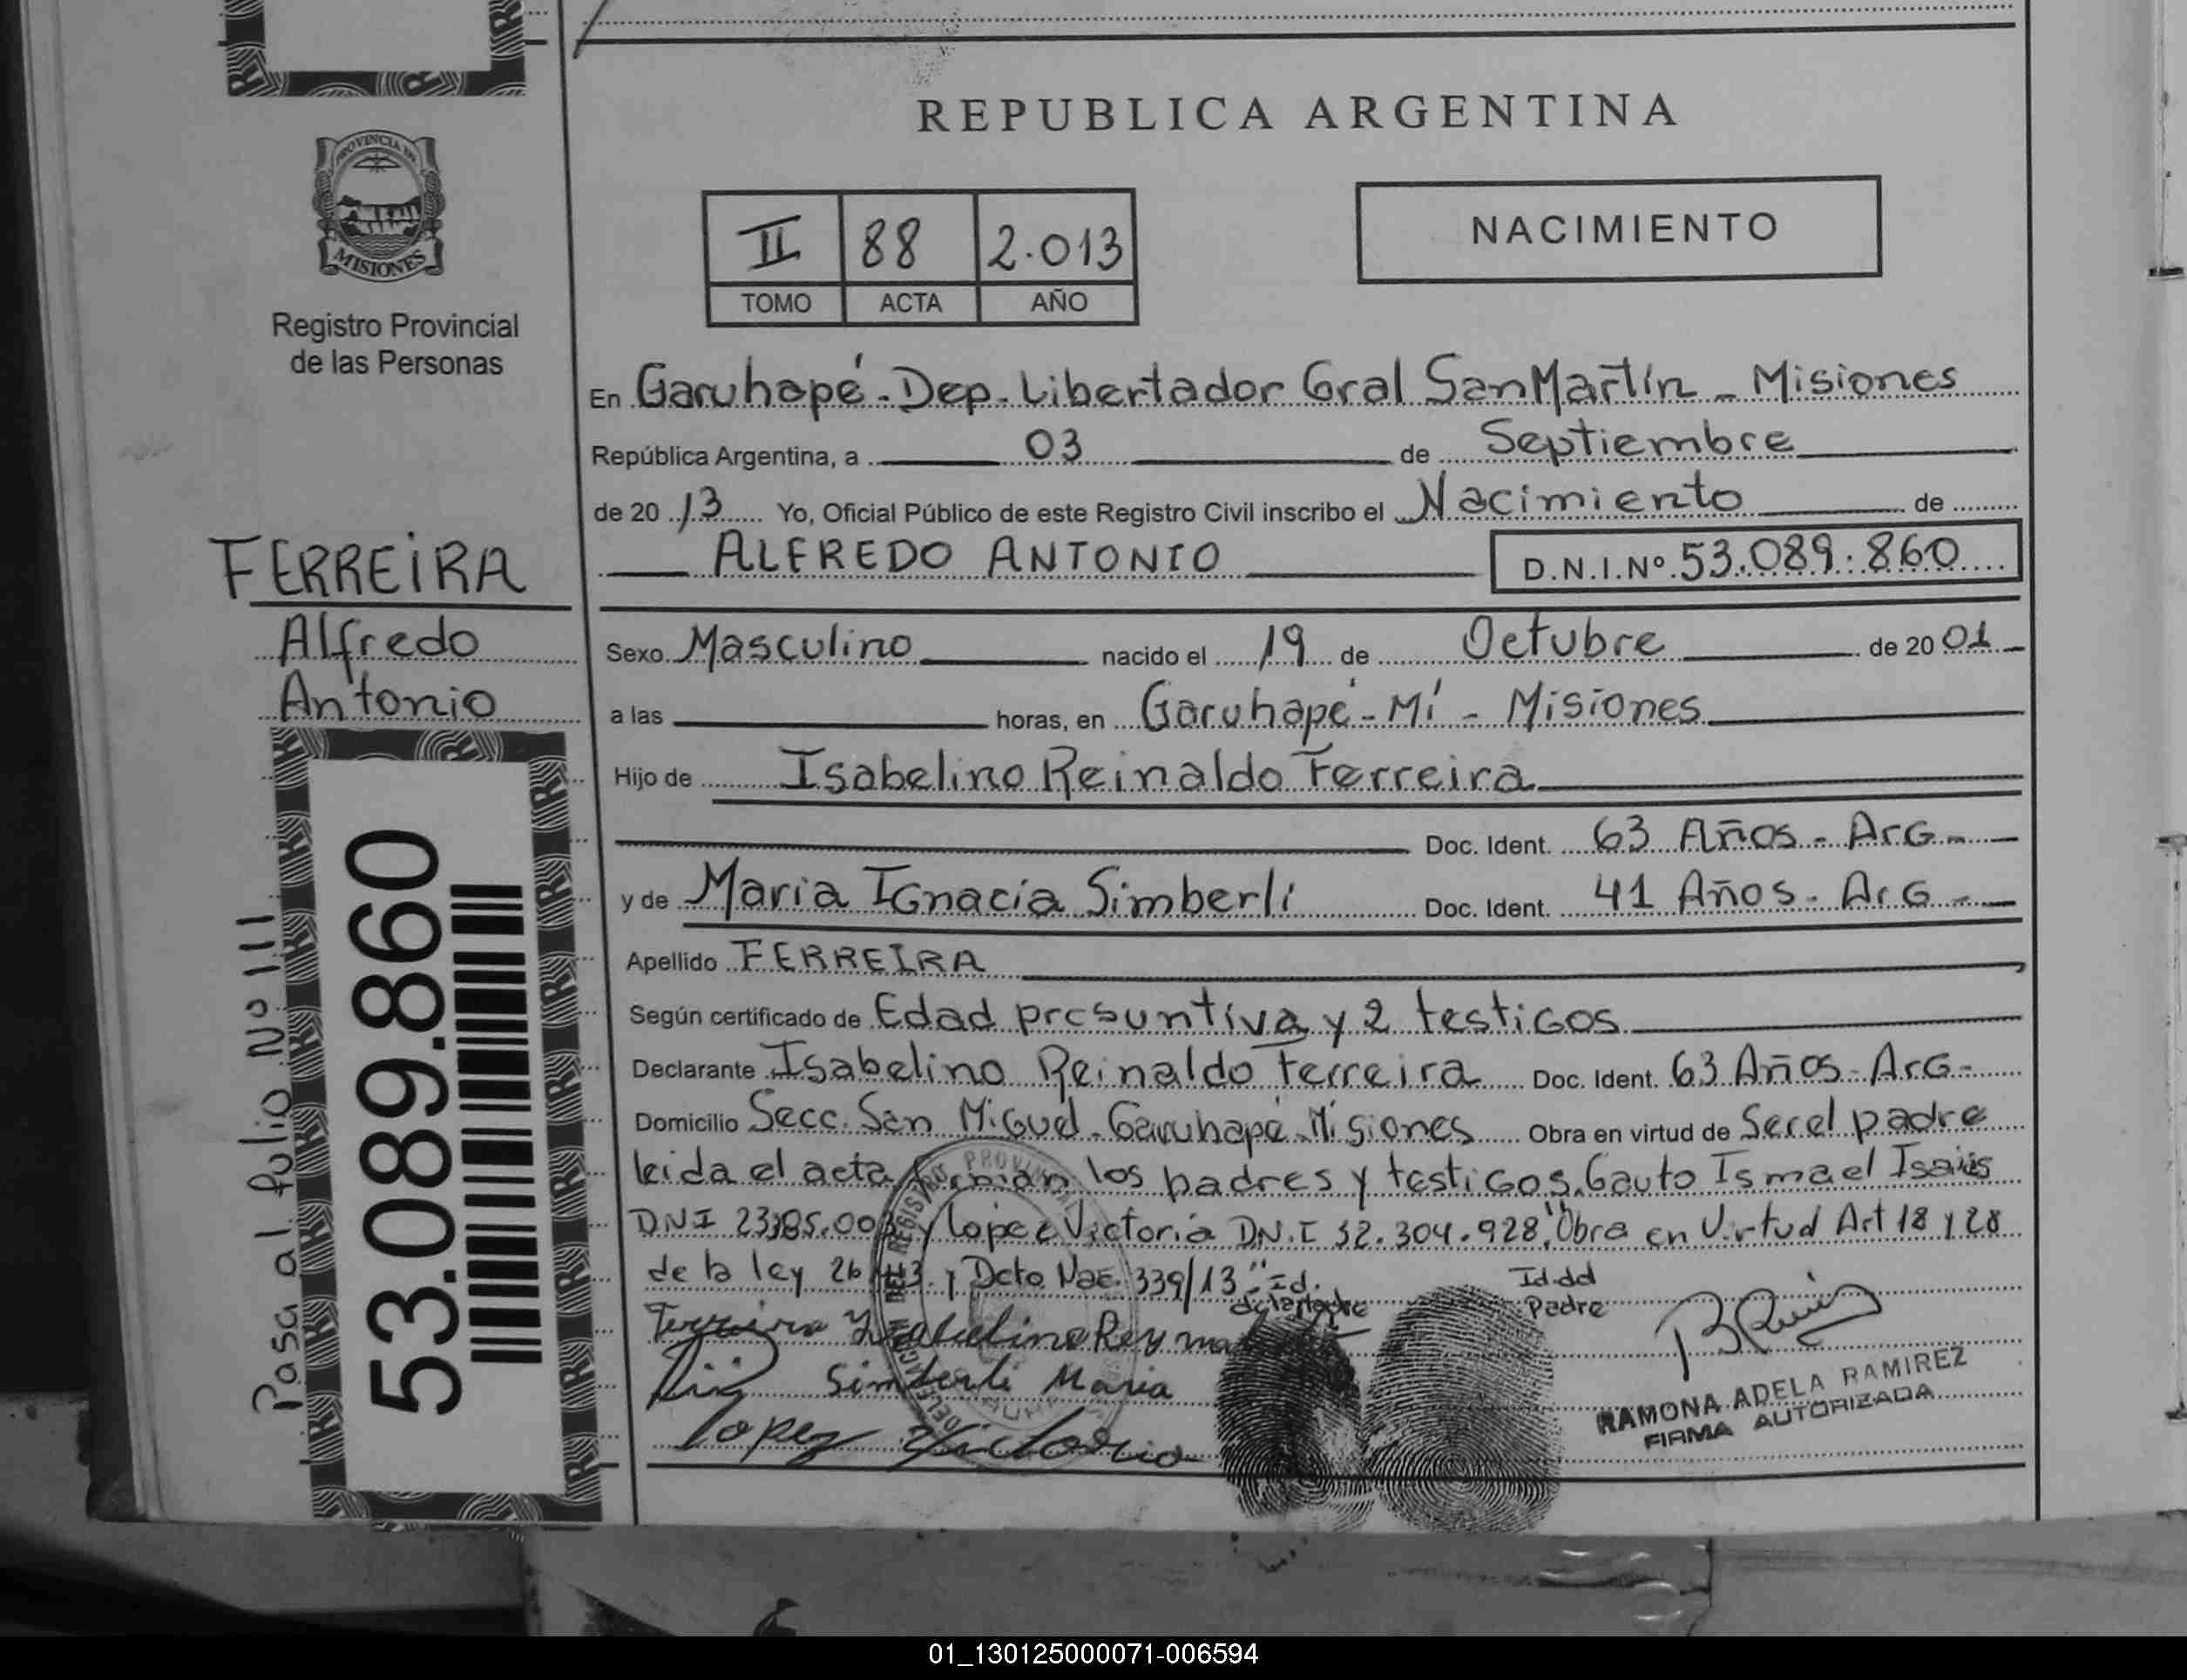 REPUBLICA ARGENTINA
PROVINCIA DE
MISIONES
Registro Provincial
de las Personas
II 88 2.013
TOMO ACTA AÑO
NACIMIENTO
En Garuhapé - Dep. Libertador Gral San Martín - Misiones
República Argentina, a 03 de Septiembre
de 20 13 Yo, Oficial Público de este Registro Civil inscribo el Nacimiento de
ALFREDO ANTONIO D.N.I.Nº 53.089.860
FERREIRA
Alfredo
Antonio
Sexo Masculino nacido el 19 de Octubre de 20 01
a las horas, en Garuhapé - Mí - Misiones
Hijo de Isabelino Reinaldo Ferreira
Doc. Ident. 63 Años - Arg -
y de Maria Ignacia Simberli Doc. Ident. 41 Años - Arg -
Apellido FERREIRA
Según certificado de Edad presuntiva y 2 testigos
Declarante Isabelino Reinaldo Ferreira Doc. Ident. 63 Años - Arg -
Domicilio Secc. San Miguel - Garuhapé - Misiones Obra en virtud de Ser el padre
leida el acta firman los padres y testigos, Gauto Ismael Isaias
DNI y Lopez Victoria D.N.I 32.304.928, "Obra en Virtud Art 18 y 28
de la ley y Dcto Nac. 339/13"
Id.dd
Padre
Ferreira
Simberli Maria
Lopez Victoria
RAMONA ADELA RAMIREZ
FIRMA AUTORIZADA
Pasa al folio Nº 111
53.089.860
01_130125000071-006594